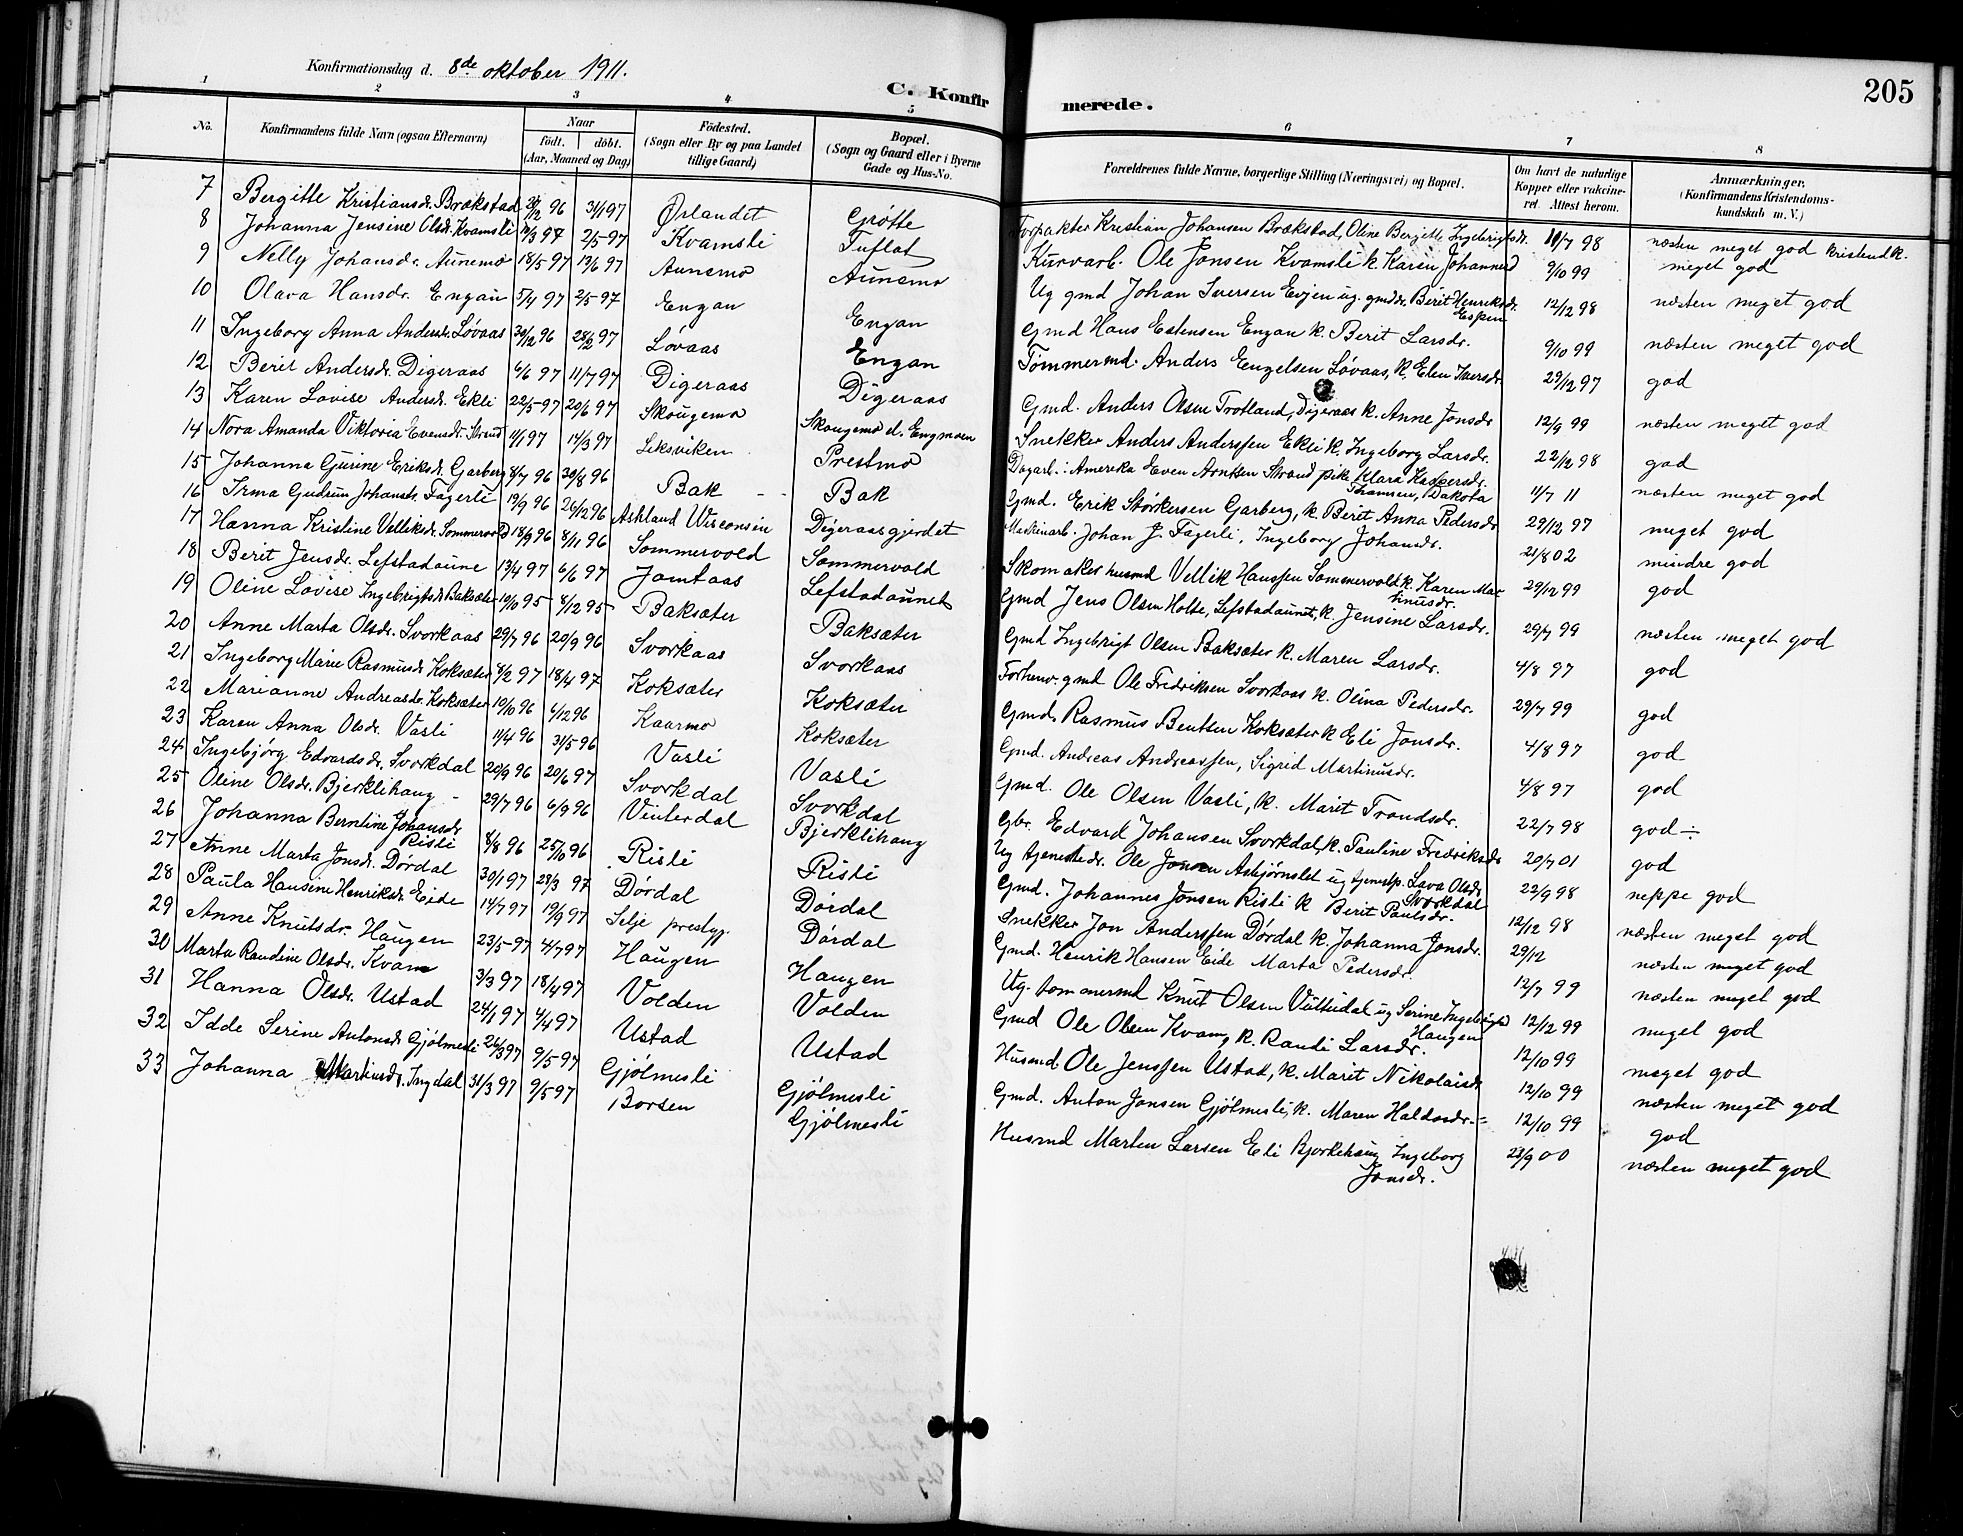 Konfirmationsdag d. 8de oktober 1911.
C. Konfirmerede.
205
1 2 3 4 5 6 7 8
No. | Konfirmandens fulde Navn (ogsaa Efternavn) | Naar født. døbt. (Aar, Maaned og Dag) | Födested. (Sogn eller By og paa Landet tillige Gaard) | Bopæl. (Sogn og Gaard eller i Byerne Gade og Hus-No. | Forældrenes fulde Navne, borgerlige Stilling (Næringsvei) og Bopæl. | Om havt de naturlige Kopper eller vakcineret. Attest herom. | Anmærkninger. (Konfirmandens Kristendomskundskab m. V.)
7 Bergitte Kristiansdr. Brækstad 29/12 96 31/1 97 Ørlandet Grøtte Forpakter Kristian Johansen Brækstad, Oline Bergitte Ingebrigtsdr. 11/7 98 næsten meget god kristendk.
8 Johanna Jensine Olsdr. Kvamsli 10/3 97 2/5-97 Kvamsli Tuflat Kurvarb. Ole Jonsen Kvamsli k. Karen Johannesd 9/10 99 meget god
9 Nelly Johansdr. Aunemo 18/5 97 19/6 97 Aunemo Aunemo Ug gmd Johan Iversen Evjen ug. gmddr. Berit Henriksdr. Espen 12/12 98 næsten meget god
10 Olava Hansdr. Engan 5/4 97 2/5-97 Engan Engan Gmd Hans Estensen Engan k. Berit Larsdr. 9/10 99 næsten meget god
11 Ingeborg Anna Andersdr. Løvaas 30/12 96 28/2 97 Løvaas Engan Tømmermd. Anders Engelsen Løvaas, k. Elen Iversdr 29/12 97 god
12 Berit Andersdr. Digeraas 6/6 97 11/7 97 Digeraas Digeraas Gmd. Anders Olsen Trotland, Digeraas k. Anne Jonsdr 12/9 99 næsten meget god
13 Karen Lovise Andersdr. Ekli 22/5-97 20/6 97 Skougemo Skougemo d. Engmoen Snekker Anders Anderssen Ekli k. Ingeborg Larsdr. 22/12 98 god
14 Nora Amanda Viktoria Evensdr. Strand 11/1 97 14/3 97 Leksviken Prestmo Dagarb. i Amerika Even Arntsen Strand pike Klara Kaspersdr. Thamsen, Dakota 11/7 11 næsten meget god
15 Johanna Gurine Eriksdr. Garberg 8/7 96 30/8 96 Bak Bak Gmd. Erik Størkersen Garberg, k. Berit Anna Pedersdr 29/12 97 meget god
16 Irma Gudrun Johansdr. Fagerli 19/9 96 26/12 96 Ashland Wisconsin Digeraasgjerdet Maskinarb. Johan J. Fagerli, Ingeborg Johansdr. 21/8 02 mindre god
17 Hanna Kristine Velliksdr. Sommervold 18/9 96 8/11 96 Sommervold Sommervold Skomaker husmd Vellik Hanssen Sommervold k. Karen Martinusdr. 29/12 99 god
18 Berit Jensdr. Lefstadaune 13/4 97 6/6 97 Jomtaas Lefstadaunet Gmd Jens Olsen Holte, Lefstadaunet, k. Jensine Larsdr. 29/7 99 næsten meget god
19 Oline Lovise Ingebrigtsdr. Baksæter 19/10 95 8/12 95 Baksæter Baksæter Gmd Ingebrigt Olsen Baksæter k. Maren Larsdr. 4/8 97 god
20 Anne Marta Olsdr. Svorkaas 29/7 96 20/9 96 Svorkaas Svorkaas Forhenv. gmd Ole Fredriksen Svorkaas k. Olina Pedersdr. 29/7 99 god
21 Ingeborg Marie Rasmusdr Koksæter 8/2 97 18/4 97 Koksæter Koksæter Gmd. Rasmus Bentsen Koksæter k Eli Jonsdr. 4/8 97 god
22 Marianne Andreasdr. Koksæter 10/10 96 6/12 96 Kaarmo Koksæter Gmd. Andreas Andreassen, Sigrid Martinusdr. 4/8 97 god
23 Karen Anna Olsdr. Vasli 11/4 96 31/5-96 Vasli Vasli Gmd. Ole Olsen Vasli, k. Marit Trondsdr. 22/7 98 god ÷
24 Ingebjørg Edvardsdr. Svorkdal 20/9 96 20/6 97 Svorkdal Svorkdal Gbr. Edvard Johansen Svorkdal, k. Pauline Fredriksdr 20/7 01 god
25 Oline Olsdr. Bjerklihaug 29/7 96 6/9 96 Vinterdal Bjerklihaug Ug tjenestedr. Ole Jonsen Asbjørnslet ug tjenestp. Lava Olsdr Svorkdal 22/9 98 neppe god
26 Johanna Berntine Johansdr. Risli 8/8 96 25/10 96 Risli Risli Gmd. Johannes Jonsen Risli k Berit Paulsdr. 12/12 98 næsten meget god
27 Anne Marta Jonsdr. Dørdal 30/1 97 28/3 97 Dørdal Dørdal Snekker Jon Anderssen Dørdal k. Johanna Jonsdr. 29/12 næsten meget god
28 Paula Hansine Henriksdr. Eide 14/7 97 19/9 97 Selje prestgj. Dørdal Gmd. Henrik Hansen Eide Marta Pedersdr. 12/7 99 næsten meget god
29 Anne Knutsdr. Haugen 23/5-97 4/7 97 Haugen Haugen Ug. tømmermd Knut Olsen Vuttudal ug Serine Ingebrigtsd Haugen 12/12 99 meget god
30 Marta Randine Olsdr. Kvam 3/3 97 18/4 97 Volden Volden Gmd Ole Olsen Kvam, k. Randi Larsdr. 12/10 99 meget god
31 Hanna Olsdr. Ustad 24/1 97 4/4 97 Ustad Ustad Husmd Ole Jenssen Ustad, k. Marit Nikolaisdr 12/10 99 næsten meget god
32 Idde Serine Antonsdr Gjølmesli 26/3 97 9/5-97 Gjølmesli Gjølmesli Gmd. Anton Jonsen Gjølmesli, k. Maren Haldosdr. 12/10 99 god
33 Johanna Martinsdr. Ingdal 31/3 97 9/5-97 Børsen Gjølmesli Husmd Marten Larsen Eli Bjorkehaug Ingeborg Jonsdr. 23/9 00 næsten meget god